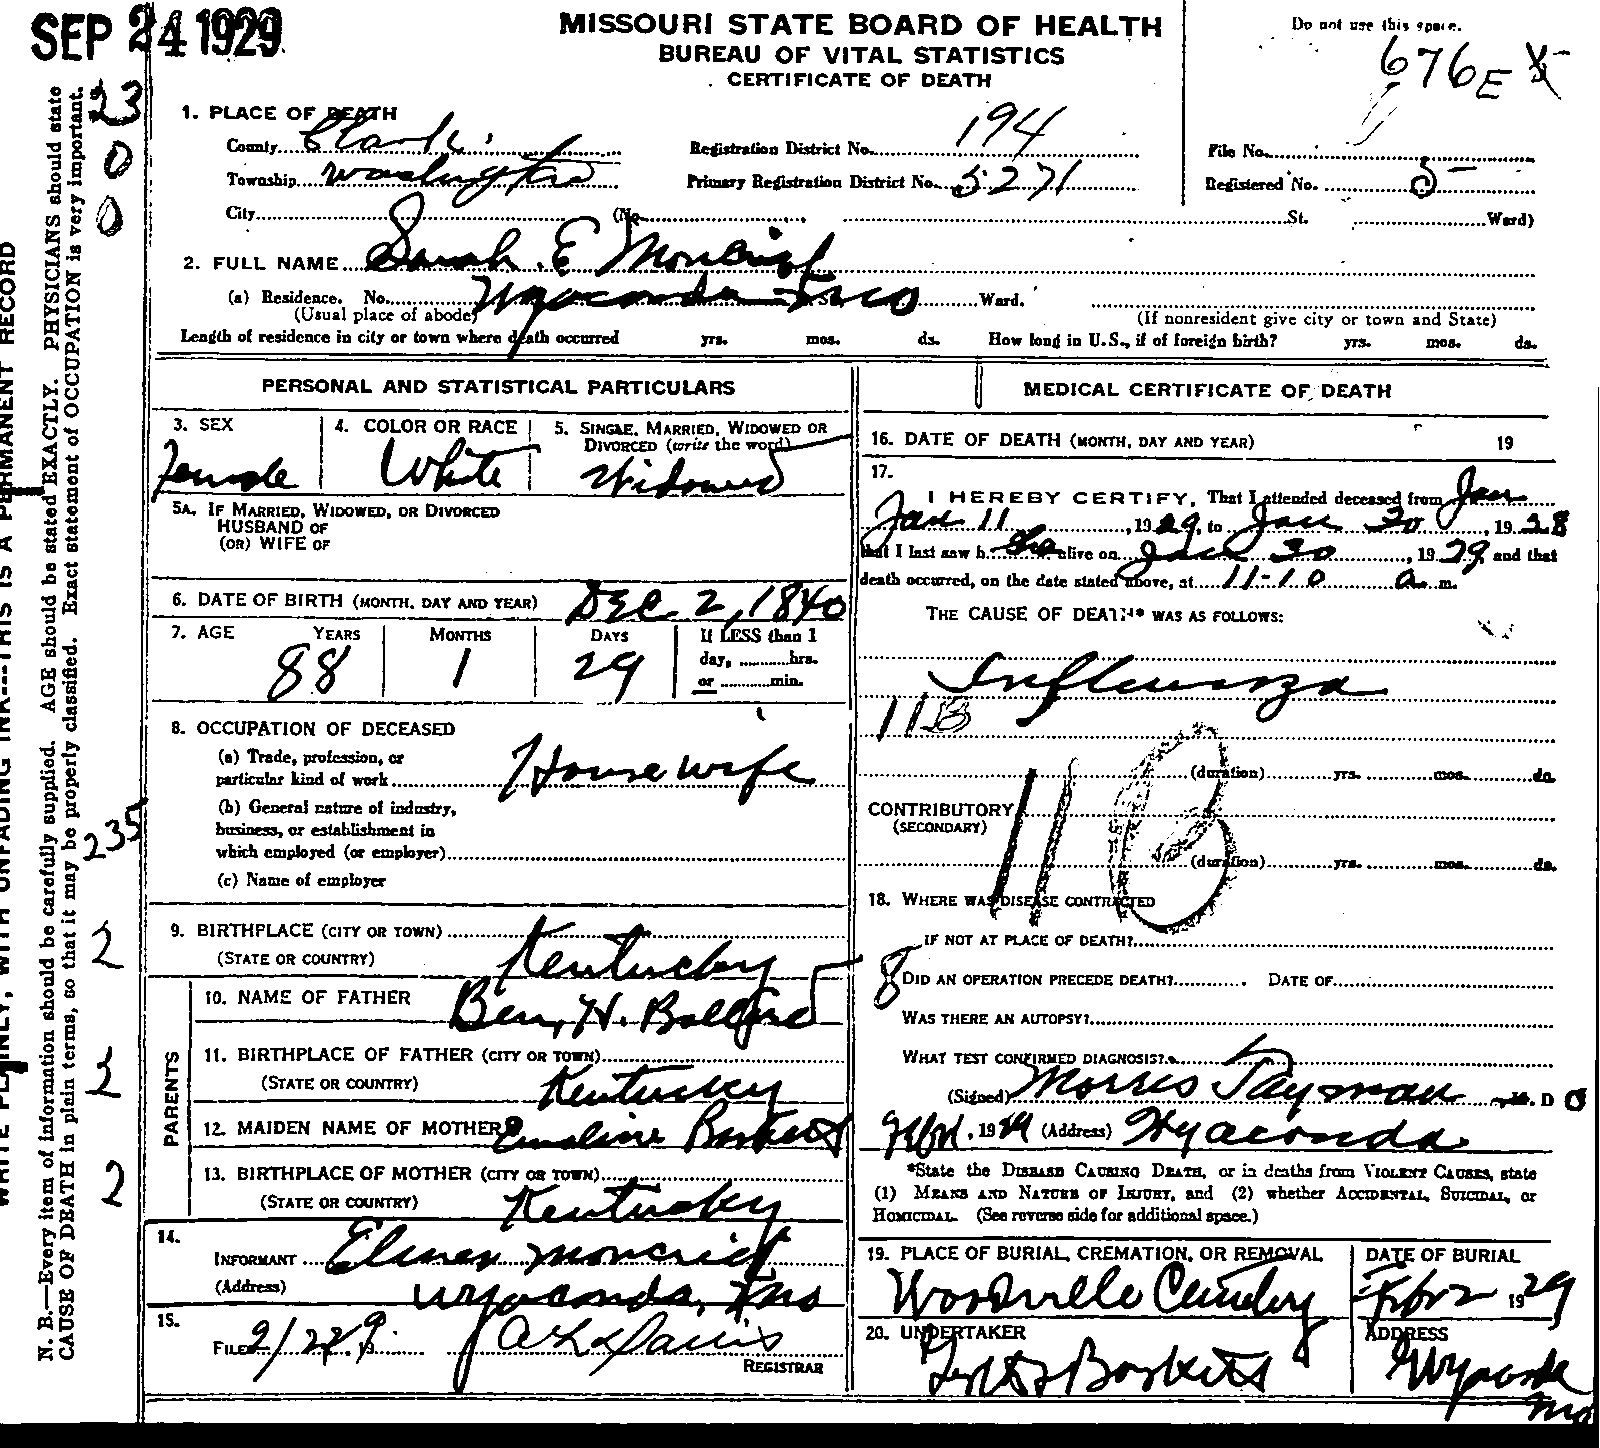 SEP 24 1929
MISSOURI STATE BOARD OF HEALTH
BUREAU OF VITAL STATISTICS
CERTIFICATE OF DEATH
Do not use this space.
676 E
1. PLACE OF DEATH
County Clark
Registration District No. 194
File No.
Township Washington
Primary Registration District No. 5271
Registered No. 5
City (No. St. Ward)
2. FULL NAME Sarah E Moncrief
(a) Residence. No. Wyaconda Mo St. Ward.
(Usual place of abode)
(If nonresident give city or town and State)
Length of residence in city or town where death occurred yrs. mos. ds. How long in U.S., if of foreign birth? yrs. mos. ds.
PERSONAL AND STATISTICAL PARTICULARS
3. SEX
Female
4. COLOR OR RACE
White
5. SINGLE, MARRIED, WIDOWED OR
DIVORCED (write the word)
Widowed
5A. IF MARRIED, WIDOWED, OR DIVORCED
HUSBAND OF
(OR) WIFE OF
6. DATE OF BIRTH (MONTH, DAY AND YEAR) Dec 2, 1840
7. AGE YEARS MONTHS DAYS If LESS than 1
88 1 29 day, hrs.
or min.
8. OCCUPATION OF DECEASED
(a) Trade, profession, or
particular kind of work Housewife
(b) General nature of industry,
business, or establishment in
which employed (or employer)
(c) Name of employer
9. BIRTHPLACE (CITY OR TOWN)
(STATE OR COUNTRY) Kentucky
PARENTS
10. NAME OF FATHER Ben, H.
11. BIRTHPLACE OF FATHER (CITY OR TOWN)
(STATE OR COUNTRY) Kentucky
12. MAIDEN NAME OF MOTHER Emaline Baskett
13. BIRTHPLACE OF MOTHER (CITY OR TOWN)
(STATE OR COUNTRY) Kentucky
14.
INFORMANT Elmer Moncrief
(Address) Wyaconda, Mo
15.
FILED 2/2 29. 19 Davis
REGISTRAR
MEDICAL CERTIFICATE OF DEATH
16. DATE OF DEATH (MONTH, DAY AND YEAR) 19
17.
I HEREBY CERTIFY, That I attended deceased from Jan
Jan 11, 1929, to Jan 30, 1928
that I last saw h alive on Jan 30, 1929, and that
death occurred, on the date stated above, at 11-10 a m.
THE CAUSE OF DEATH* WAS AS FOLLOWS:
Influenza
11B
11B
(duration) yrs. mos. ds.
CONTRIBUTORY
(SECONDARY)
(duration) yrs. mos. ds.
18. WHERE WAS DISEASE CONTRACTED
IF NOT AT PLACE OF DEATH?
8
DID AN OPERATION PRECEDE DEATH? DATE OF
WAS THERE AN AUTOPSY?
WHAT TEST CONFIRMED DIAGNOSIS?
(Signed) Morris Tayman D O
1929 (Address) Wyaconda
*State the DISEASE CAUSING DEATH, or in deaths from VIOLENT CAUSES, state
(1) MEANS AND NATURE OF INJURY, and (2) whether ACCIDENTAL, SUICIDAL, or
HOMICIDAL. (See reverse side for additional space.)
19. PLACE OF BURIAL, CREMATION, OR REMOVAL
Woodville Cemetery
DATE OF BURIAL
Feb 2 1929
20. UNDERTAKER
Baskett
ADDRESS
Wyaconda
Mo
23
0
0
235
2
2
2
WRITE PLAINLY, WITH UNFADING INK---THIS IS A PERMANENT RECORD
N. B.—Every item of information should be carefully supplied. AGE should be stated EXACTLY. PHYSICIANS should state
CAUSE OF DEATH in plain terms, so that it may be properly classified. Exact statement of OCCUPATION is very important.